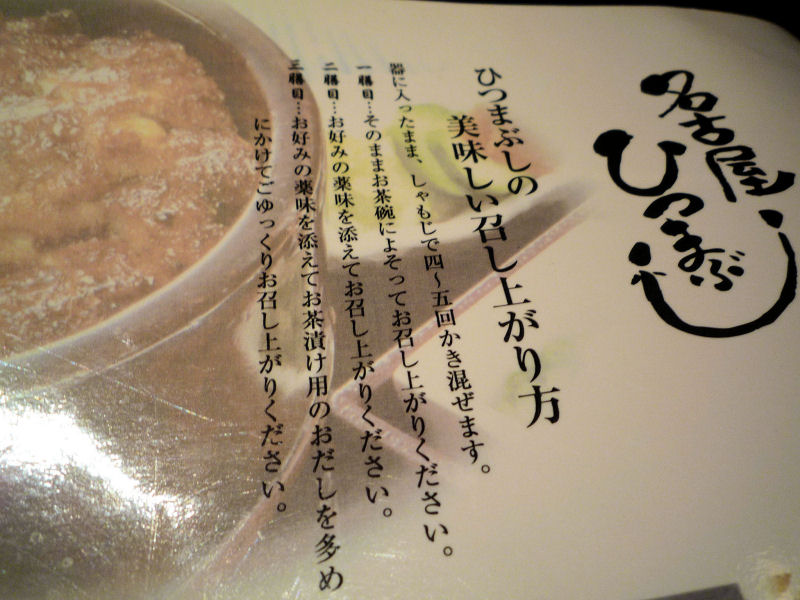 名古屋
ひつまぶし
ひつまぶしの
美味しい召し上がり方
器に入ったまま、しゃもじで四〜五回かき混ぜます。
一膳目…そのままお茶碗によそってお召し上がりください。
二膳目…お好みの薬味を添えてお召し上がりください。
三膳目…お好みの薬味を添えてお茶漬け用のおだしを多め
にかけてごゆっくりお召し上がりください。